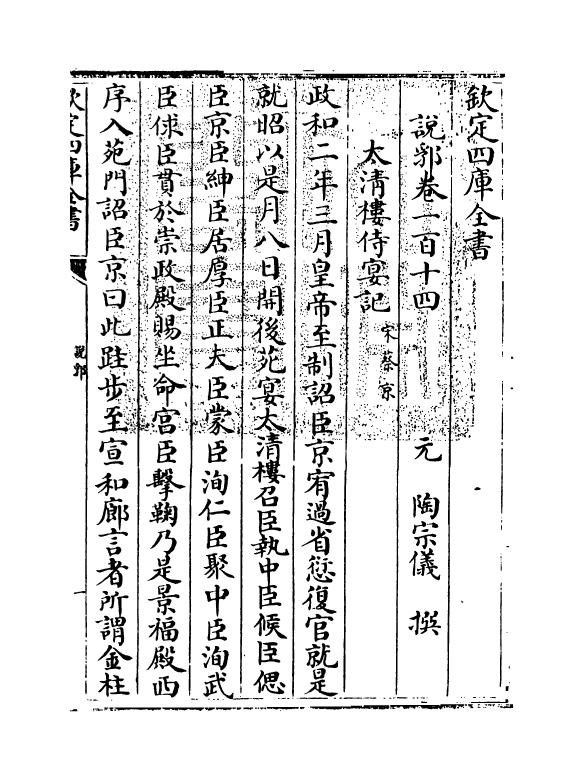 欽定四庫全書
說郛卷一百十四
元 陶宗儀 撰
太清樓侍宴記 宋蔡京
政和二年三月皇帝至制詔臣京宥過省愆復官就是
就昭以是月八日開後苑宴太清樓召臣執中臣候臣偲
臣京臣紳臣居厚臣正夫臣蒙臣洵仁臣聚中臣洵武
臣俅臣貫於崇政殿賜坐命宫臣擊鞠乃是景福殿西
序入苑門詔臣京曰此跬步至宣和廊言者所謂金柱
欽定四庫全書
說郛
一